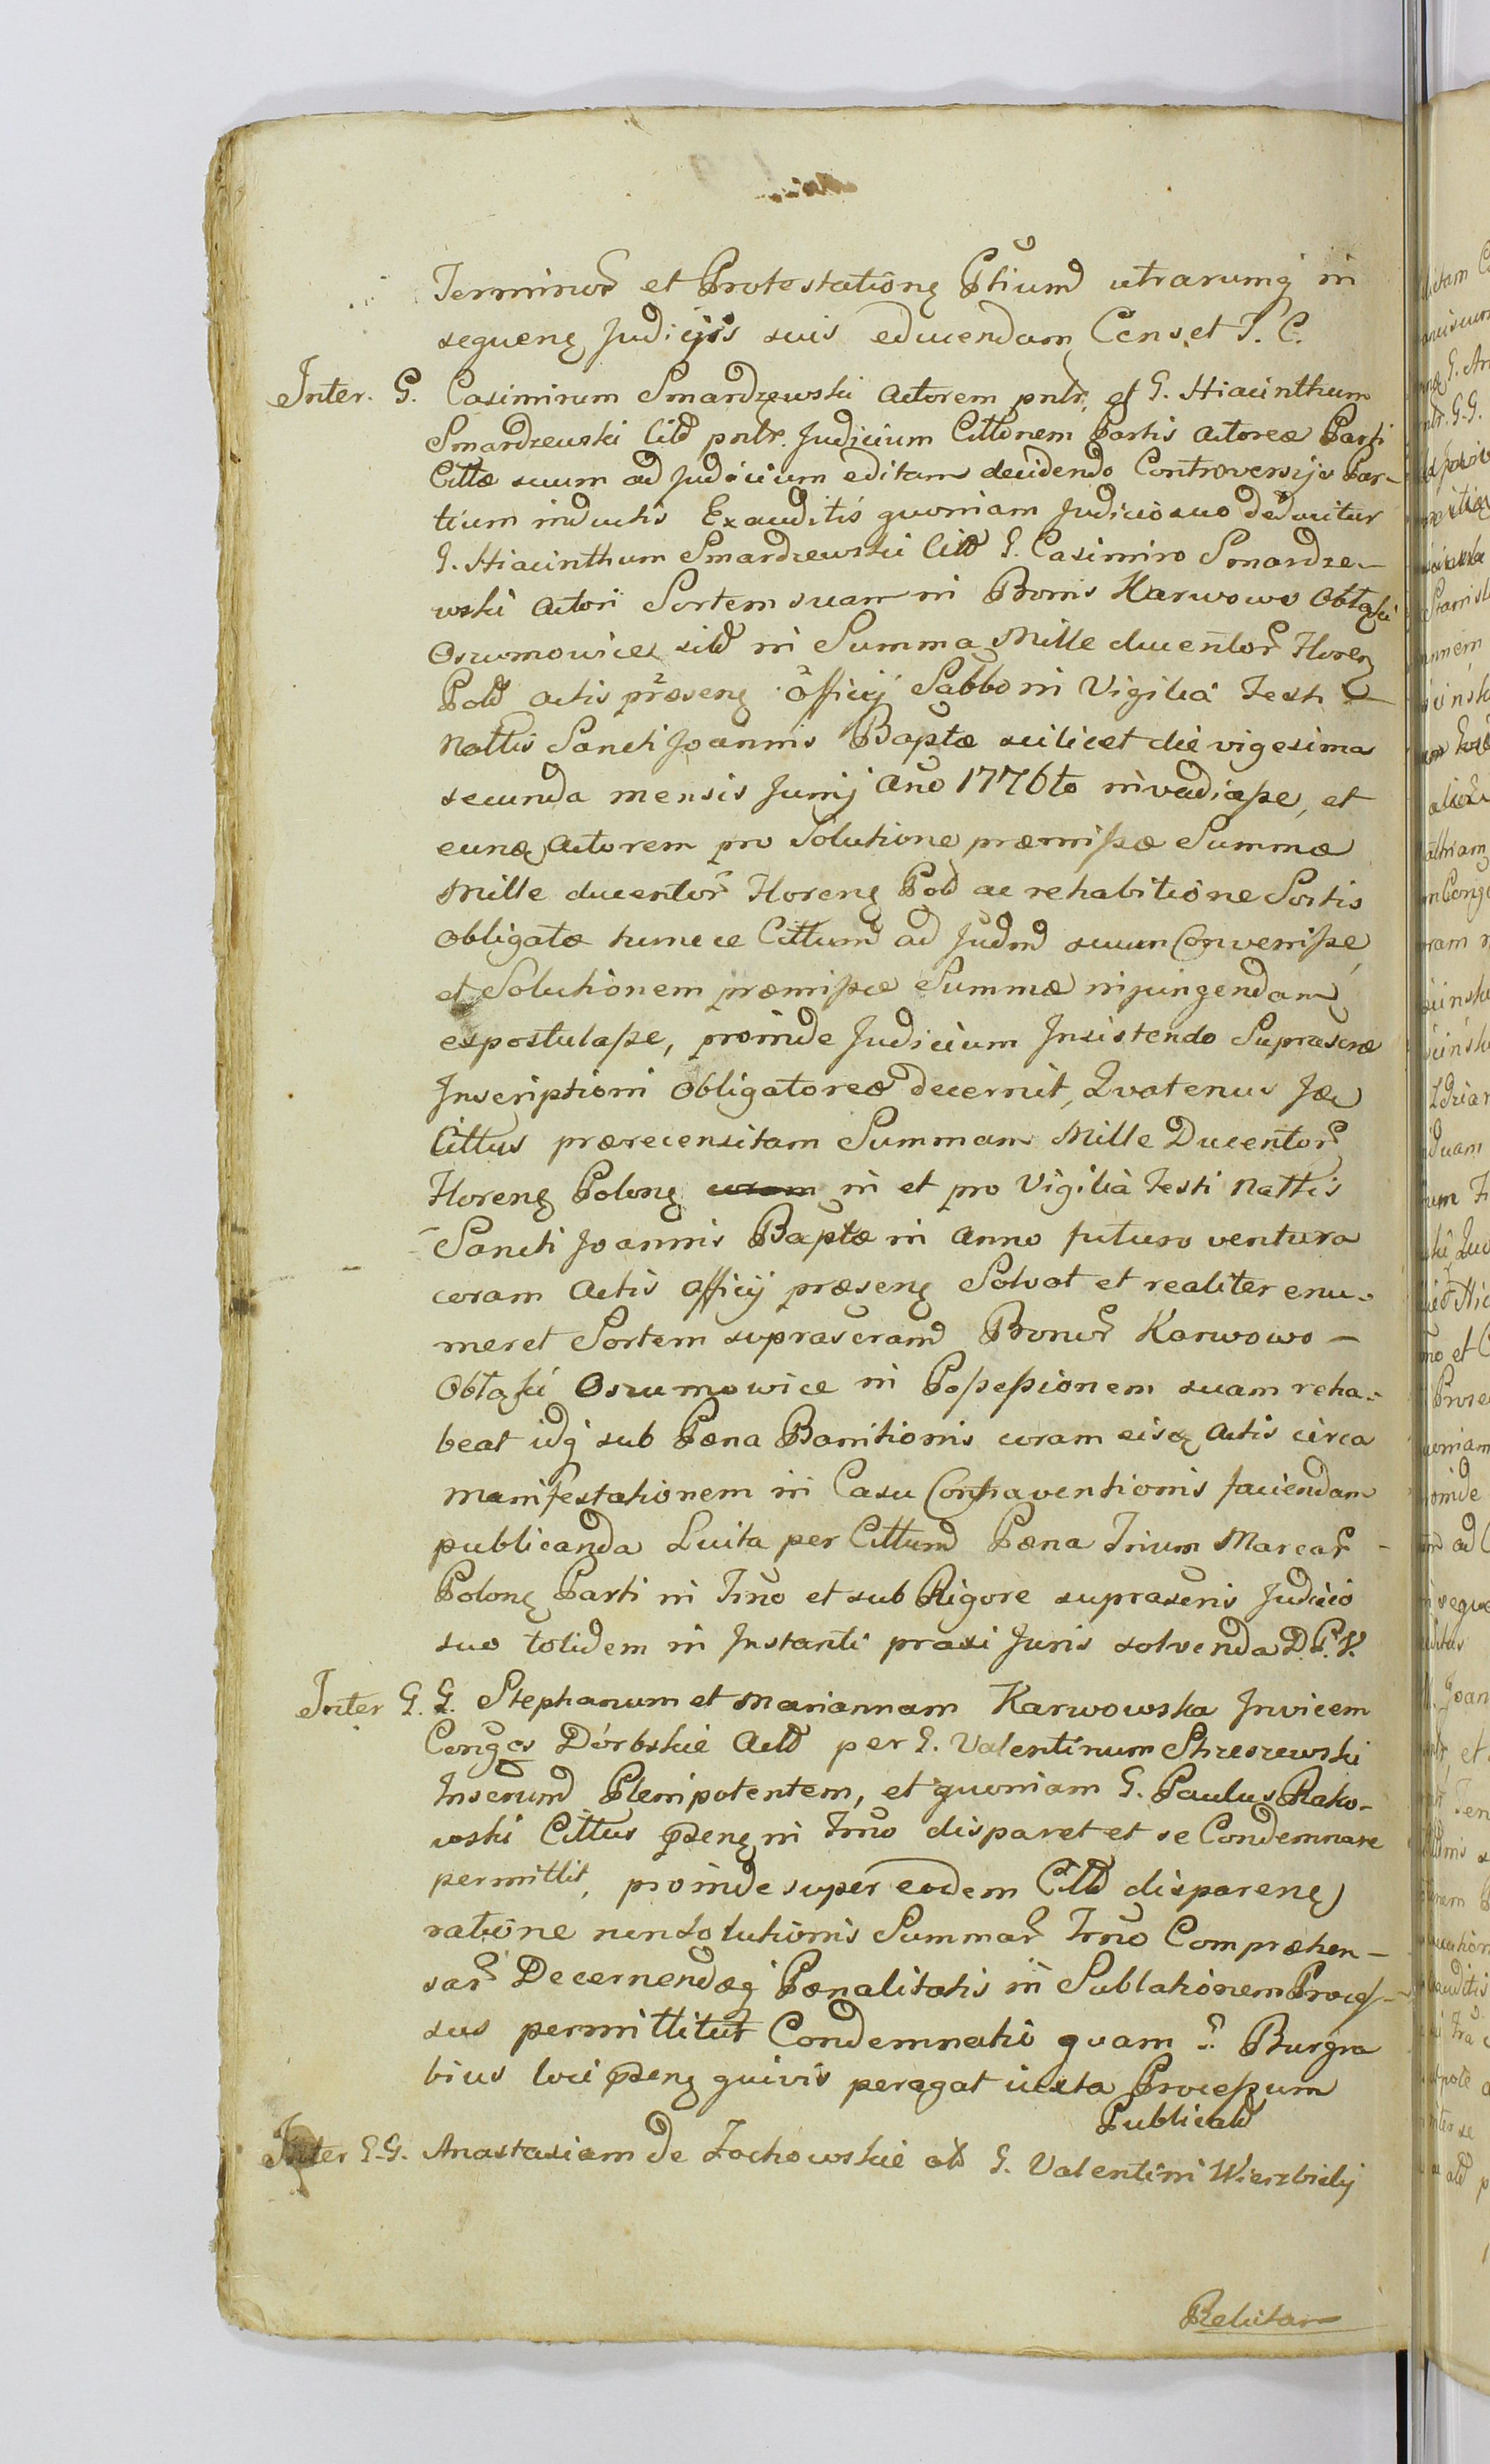 Terminor et Protestatione Ptium utrarumq in
sequen Judicijs suis educendam Censet I. C.
Inter. G. Casimirum Smardzewski Actorem pntr. et G. Hiacinthum
Smardzewski Citt pntr. Judicium Cittonem Partis Actoreæ Parti
Cittæ suum ad Judicium editam decidendo Controversijs Par-
tium inductis Exauditis quoniam Judicio suo deducitur
G. Hiacinthum Smardzewski Citt G. Casimiro Smardze-
wski Actori Sortem suam in Bonis Karwowo Obłaski
Oszumowice sitt in Summa Mille ducentor Floren
Pol Actis præsen Officij Sabbo in Vigilia Festi
Nattis Sancti Joannis Baptæ scilicet die vigesima
secunda mensis Junij Año 1776to invadiasse, et
eunq Actorem pro Solutione præmissæ Summæ
Mille ducentor Floren Pol ac rehabitione Sortis
obligatæ tunc ce Cittum ad Judm suum Convenisse,
et Solutionem præmissæ Summæ injungendam
expostulasse, proinde Judicium Insistendo Suprascræ
Inscriptioni obligatoreæ decernit, Quatenus Jdem
Cittus prærecensitam Summam Mille Ducentor
Floren Polon coram in et pro Vigilia Festi Nattis
Sancti Joannis Baptæ in Anno futuro ventura
coram Actis Officij præsen Solvat et realiter enu-
meret Sortem suprascram Bonor Karwowo -
Obłaski Oszumowice in Possessionem suam reha-
beat idq sub Pæna Banitionis coram eisq Actis circa
Manifestationem in Casu Contraventionis faciendam
publicanda Luita per Cittum Pæna Trium Marcar
Polon Parti in Trno et sub Rigore suprascris Judicio
suo totidem in Instanti praxi Juris solvenda D. P. V.
Inter G. G. Stephanum et Mariannam Karwowska Invicem
Congos Dórbskie Act per G. Valentinum Strzeszewski
Inscrum Plenipotentem, et quoniam G. Paulus Rako-
wski Cittus psen in Trno disparet et se Condemnare
permittit, proinde super eodem Citt disparen
ratione non Solutionis Summar Trno Compræhen-
sar Decernendæq Pænalitatis in Sublationem Proces-
sus permittitur Condemnatio quam G. Burgra
bius loci psen quivis peragat iuxta Processum
Publicat
Inter G. G. Anastasiam de Zochowskie at G. Valentini Wierzbicky
Relictam